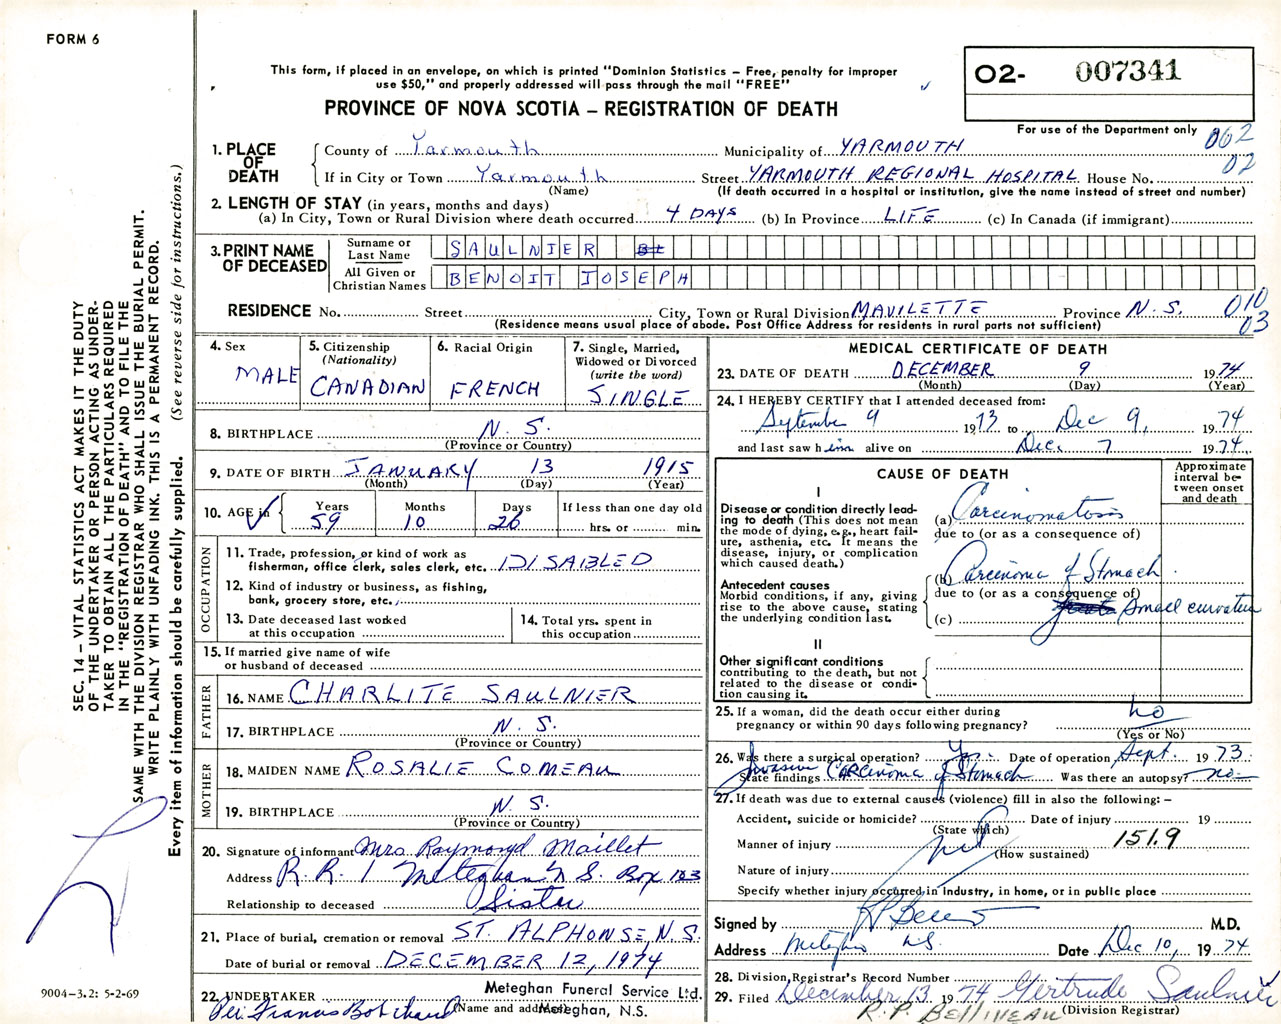 FORM 6
This form, if placed in an envelope, on which is printed "Dominion Statistics – Free, penalty for improper
use $50," and properly addressed will pass through the mail "FREE"
PROVINCE OF NOVA SCOTIA – REGISTRATION OF DEATH
O2- 007341
For use of the Department only
062
02
1. PLACE OF DEATH
County of Yarmouth Municipality of YARMOUTH
If in City or Town Yarmouth Street YARMOUTH REGIONAL HOSPITAL House No.
(Name) (If death occurred in a hospital or institution, give the name instead of street and number)
2. LENGTH OF STAY (in years, months and days)
(a) In City, Town or Rural Division where death occurred 4 DAYS (b) In Province LIFE (c) In Canada (if immigrant)
3. PRINT NAME OF DECEASED
Surname or Last Name SAULNIER
All Given or Christian Names BENOIT JOSEPH
RESIDENCE No. Street City, Town or Rural Division MAVILETTE Province N.S.
(Residence means usual place of abode. Post Office Address for residents in rural parts not sufficient)
010
03
4. Sex MALE
5. Citizenship (Nationality) CANADIAN
6. Racial Origin FRENCH
7. Single, Married, Widowed or Divorced (write the word) SINGLE
8. BIRTHPLACE N.S.
(Province or Country)
9. DATE OF BIRTH JANUARY 13 1915
(Month) (Day) (Year)
10. AGE in Years 59 Months 10 Days 26 If less than one day old hrs. or min.
OCCUPATION
11. Trade, profession, or kind of work as
fisherman, office clerk, sales clerk, etc. DISABLED
12. Kind of industry or business, as fishing,
bank, grocery store, etc.
13. Date deceased last worked
at this occupation
14. Total yrs. spent in
this occupation
15. If married give name of wife
or husband of deceased
FATHER
16. NAME CHARLITE SAULNIER
17. BIRTHPLACE N.S.
(Province or Country)
MOTHER
18. MAIDEN NAME ROSALIE COMEAU
19. BIRTHPLACE N.S.
(Province or Country)
20. Signature of informant Mrs Raymond Maillet
Address R.R. 1 Meteghan N.S. Box 103
Relationship to deceased Sister
21. Place of burial, cremation or removal ST. ALPHONSE, N.S.
Date of burial or removal DECEMBER 12, 1974
22. UNDERTAKER Meteghan Funeral Service Ltd.
(Name and address) Meteghan, N.S.
Per: Francis
MEDICAL CERTIFICATE OF DEATH
23. DATE OF DEATH DECEMBER 9 1974
(Month) (Day) (Year)
24. I HEREBY CERTIFY that I attended deceased from:
September 9 1973 to Dec 9, 1974
and last saw him alive on Dec. 7 1974
CAUSE OF DEATH
Approximate interval between onset and death
I
Disease or condition directly lead-
ing to death (This does not mean
the mode of dying, e.g., heart fail-
ure, asthenia, etc. It means the
disease, injury, or complication
which caused death.)
(a) Carcinomatosis
due to (or as a consequence of)
Antecedent causes
Morbid conditions, if any, giving
rise to the above cause, stating
the underlying condition last.
(b) Carcinoma of Stomach
due to (or as a consequence of)
(c) small curvature
II
Other significant conditions
contributing to the death, but not
related to the disease or condi-
tion causing it.
25. If a woman, did the death occur either during
pregnancy or within 90 days following pregnancy? no
(Yes or No)
26. Was there a surgical operation? Yes. Date of operation Sept. 1973
State findings Invasive Carcinoma of Stomach Was there an autopsy? no
27. If death was due to external causes (violence) fill in also the following: –
Accident, suicide or homicide? Date of injury 19
(State which)
Manner of injury 151.9
(How sustained)
Nature of injury
Specify whether injury occurred in Industry, in home, or in public place
Signed by M.D.
Address Meteghan N.S. Date Dec 10, 1974
28. Division Registrar's Record Number
29. Filed December 13 1974 Gertrude Saulnier
(Division Registrar)
R.P. BELLIVEAU
SEC. 14 – VITAL STATISTICS ACT MAKES IT THE DUTY
OF THE UNDERTAKER OR PERSON ACTING AS UNDER-
TAKER TO OBTAIN ALL THE PARTICULARS REQUIRED
IN THE "REGISTRATION OF DEATH" AND TO FILE THE
SAME WITH THE DIVISION REGISTRAR WHO SHALL ISSUE THE BURIAL PERMIT.
WRITE PLAINLY WITH UNFADING INK. THIS IS A PERMANENT RECORD.
Every item of information should be carefully supplied. (See reverse side for instructions.)
9004-3.2: 5-2-69